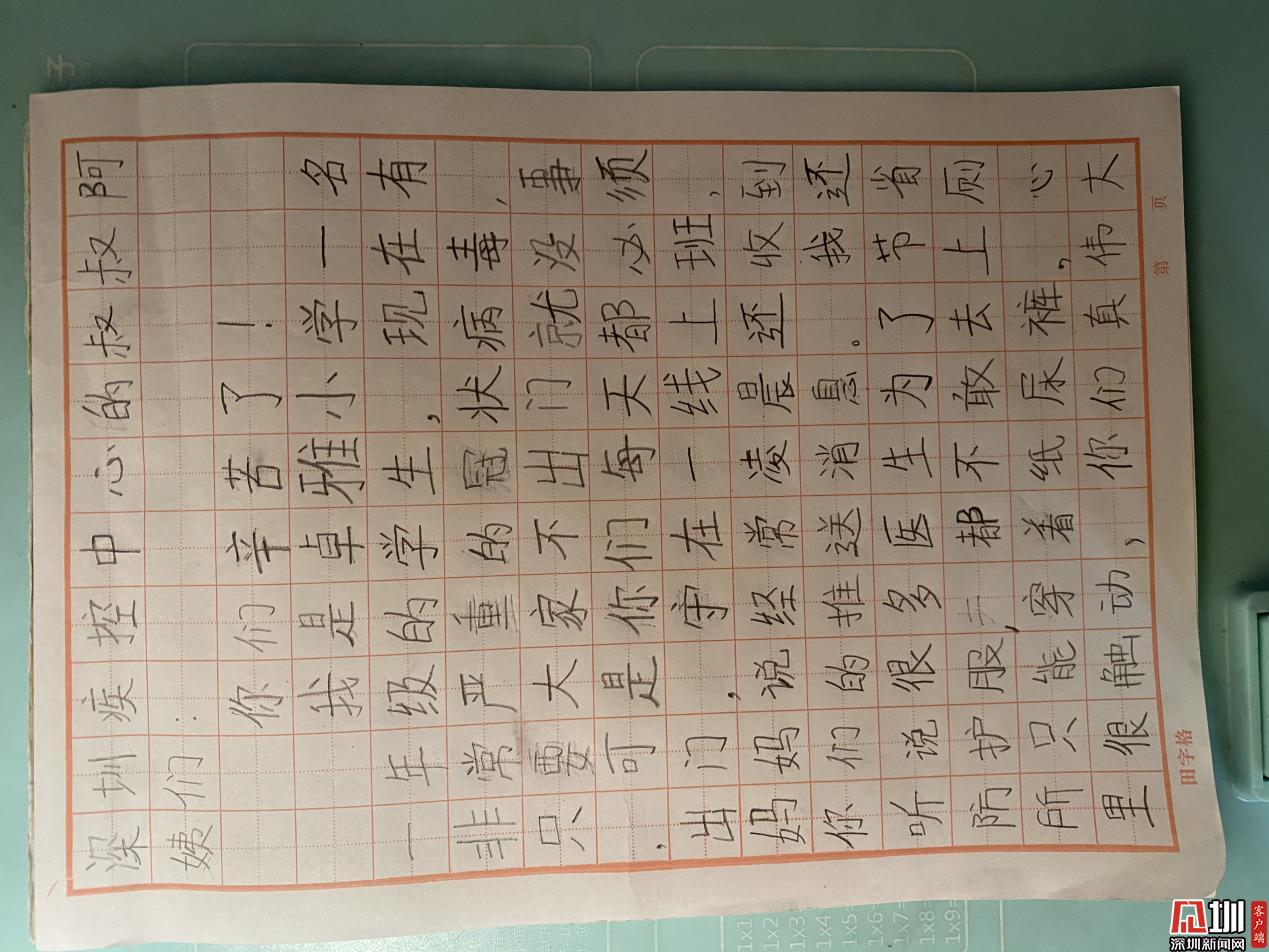 深圳疾控中心的叔叔阿
姨们:
你们辛苦了!
我是卓雅小学一名
一年级的学生,现在有
非常严重的冠状病毒,
只要大家不出门就没事
,可是你们每天都必须
出门,守在一线上班,
妈妈说经常凌晨还收到
你们的推送消息。我还
听说很多医生为了节省
防护服,都不敢去上厕
所只能穿着纸尿裤,心
里很触动,你们真伟大
田字格
第 页
1x1
1x2
1x3=
1x4
1x5=
1x6
1x7=
1x8=
1x9=
子
深圳新闻网
客户端